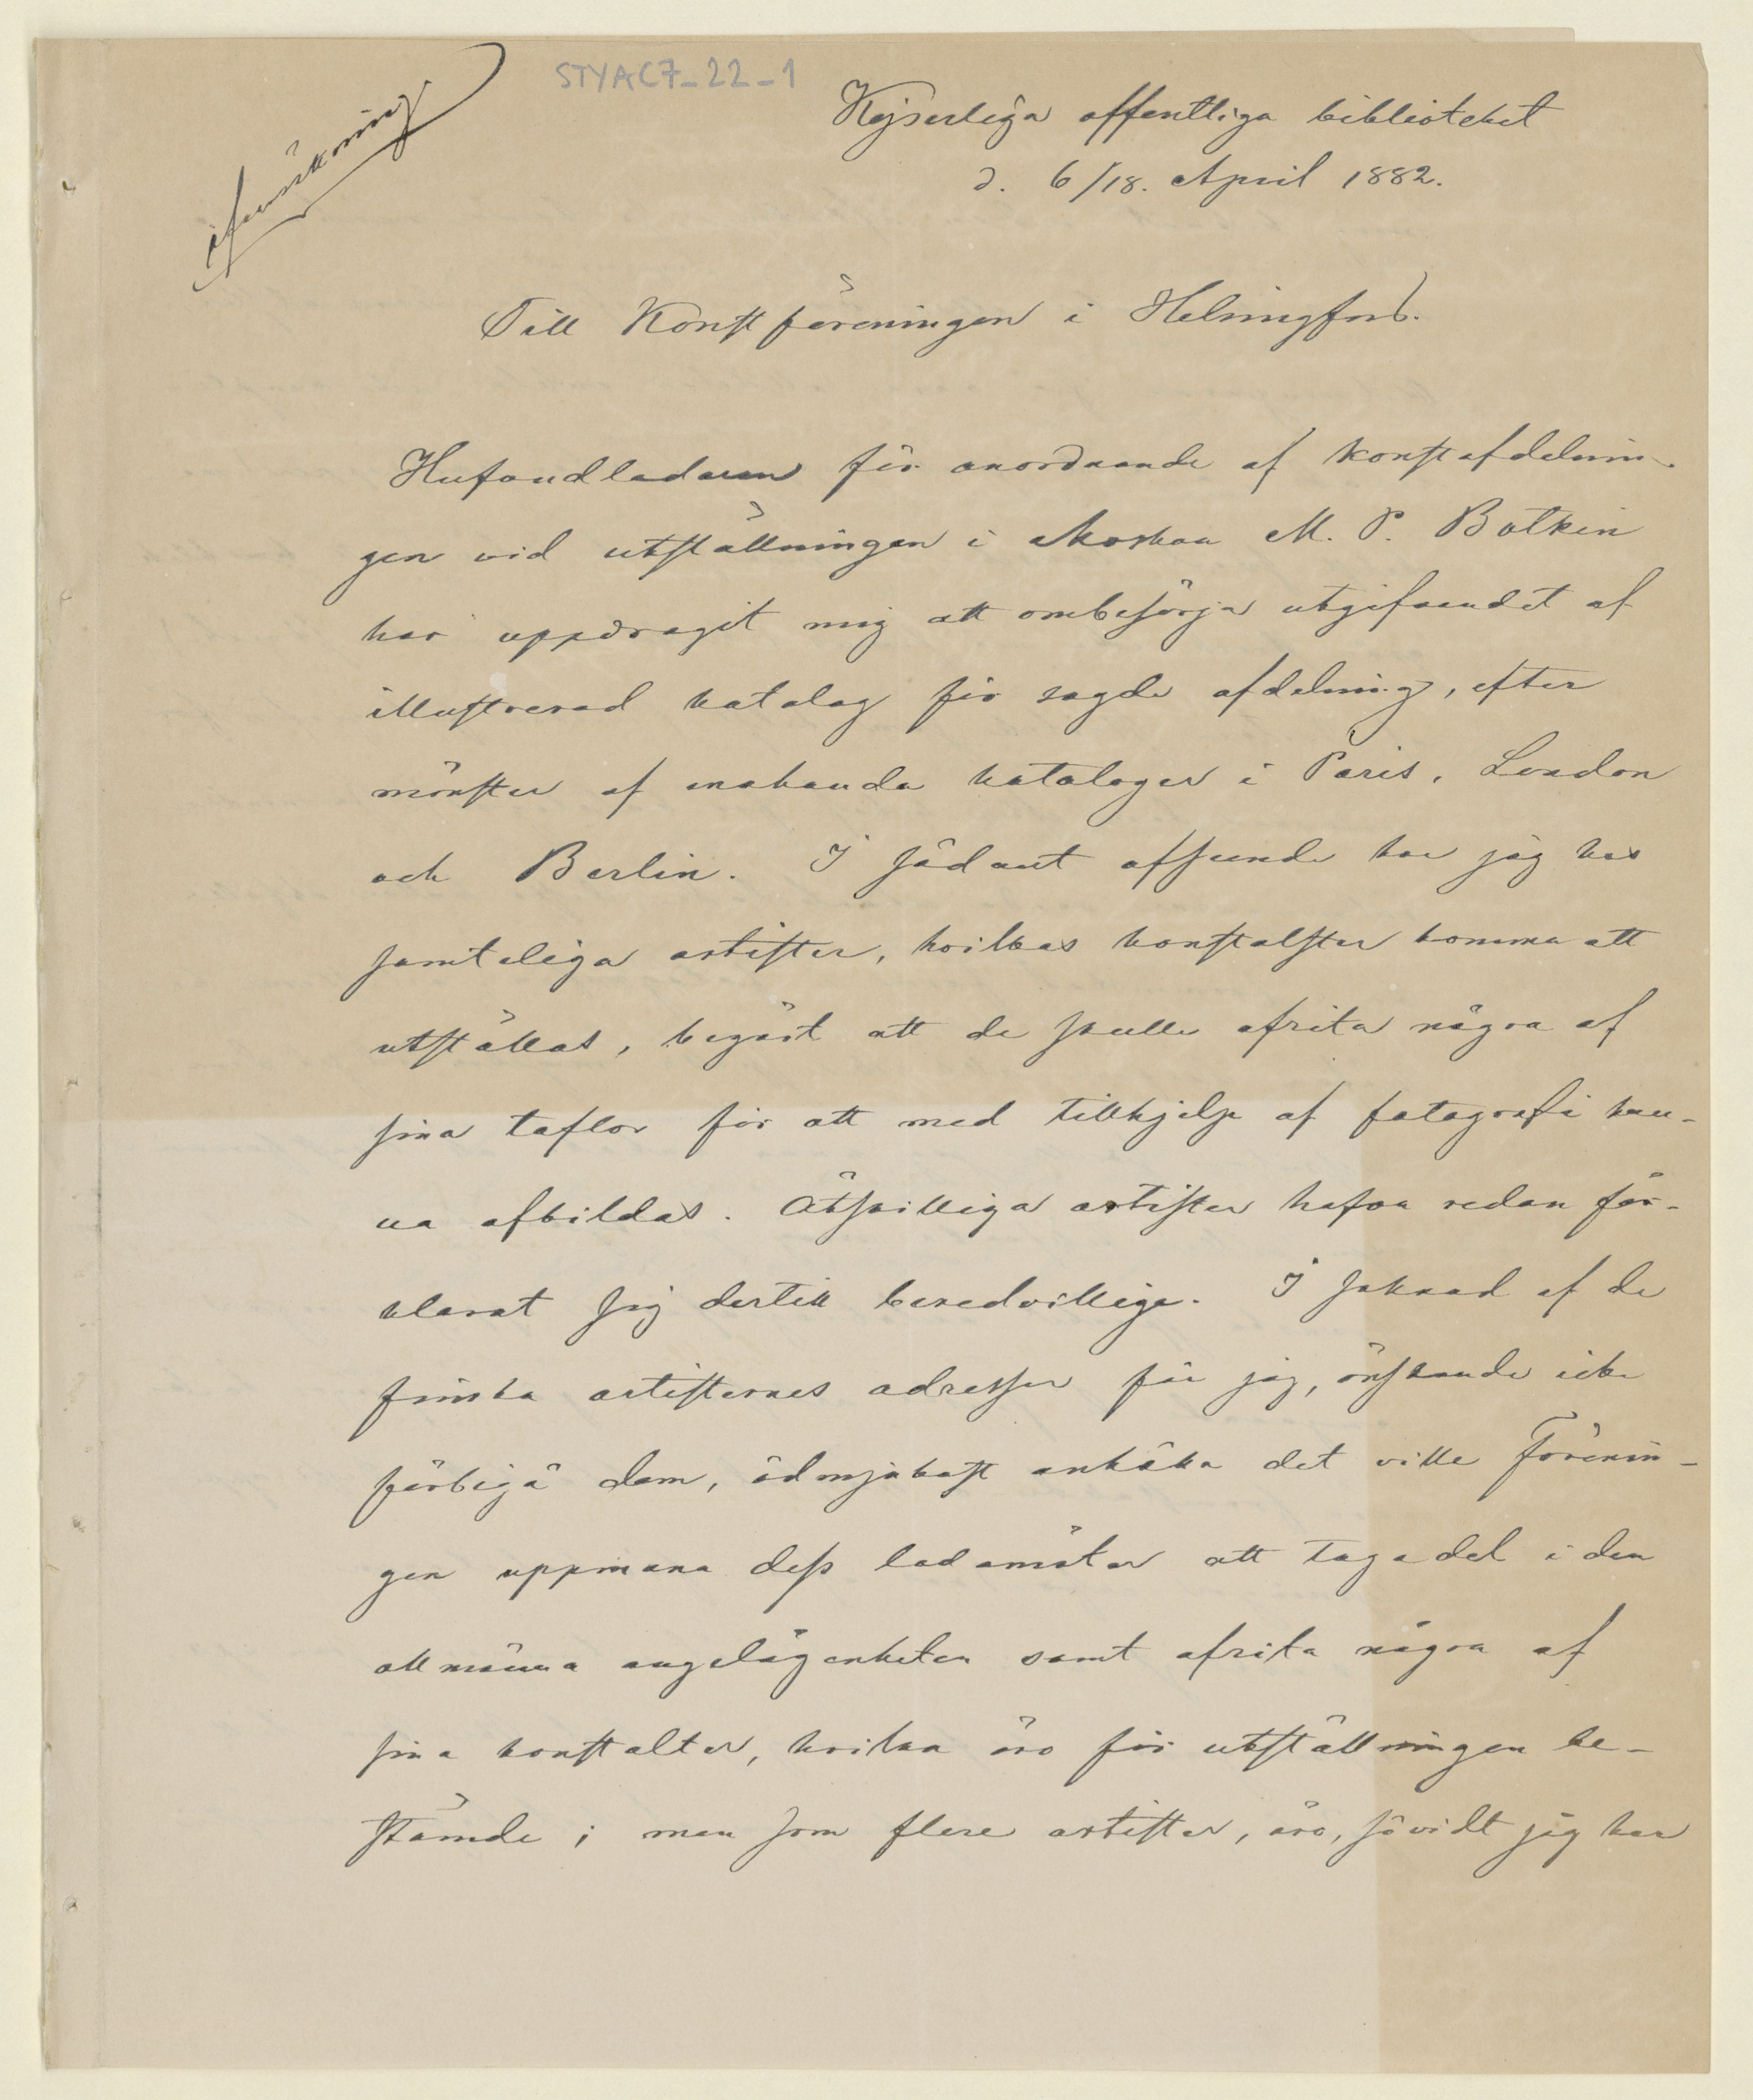 STYAC7_22_1
Kejserliga offentliga biblioteket
d. 6/18. April 1882.
Till Konstföreningen i Helsingfors.
Hufvudledaren för anordnande af konstafdelnin-
gen vid utställningen i Moskva M. P. Botkin
har uppdragit mig att ombesörja utgifvandet af
illustrerad katalog för sagde afdelning, efter
mönster af enahanda kataloger i Paris, London
och Berlin. I sådant afseende har jag hos
samteliga artister, hvilkas konstalster komma att
utställas, begärt att de skulle afrita några af
sina taflor för att med tillhjelp af fotografi kun-
na afbildas. Åtskilliga artister hafva redan för-
klarat sig dertill beredvillige. I saknad af de
finska artisternes adresser får jag, önskande icke
förbigå dem, ödmjukast anhålla det ville Förenin-
gen uppmana dess ledamöter att taga del i den
allmänna angelägenheten samt afrita några af
sina konstalter, hvilka äro för utställningen be-
stämde; men som flere artister, äro, såvidt jag har